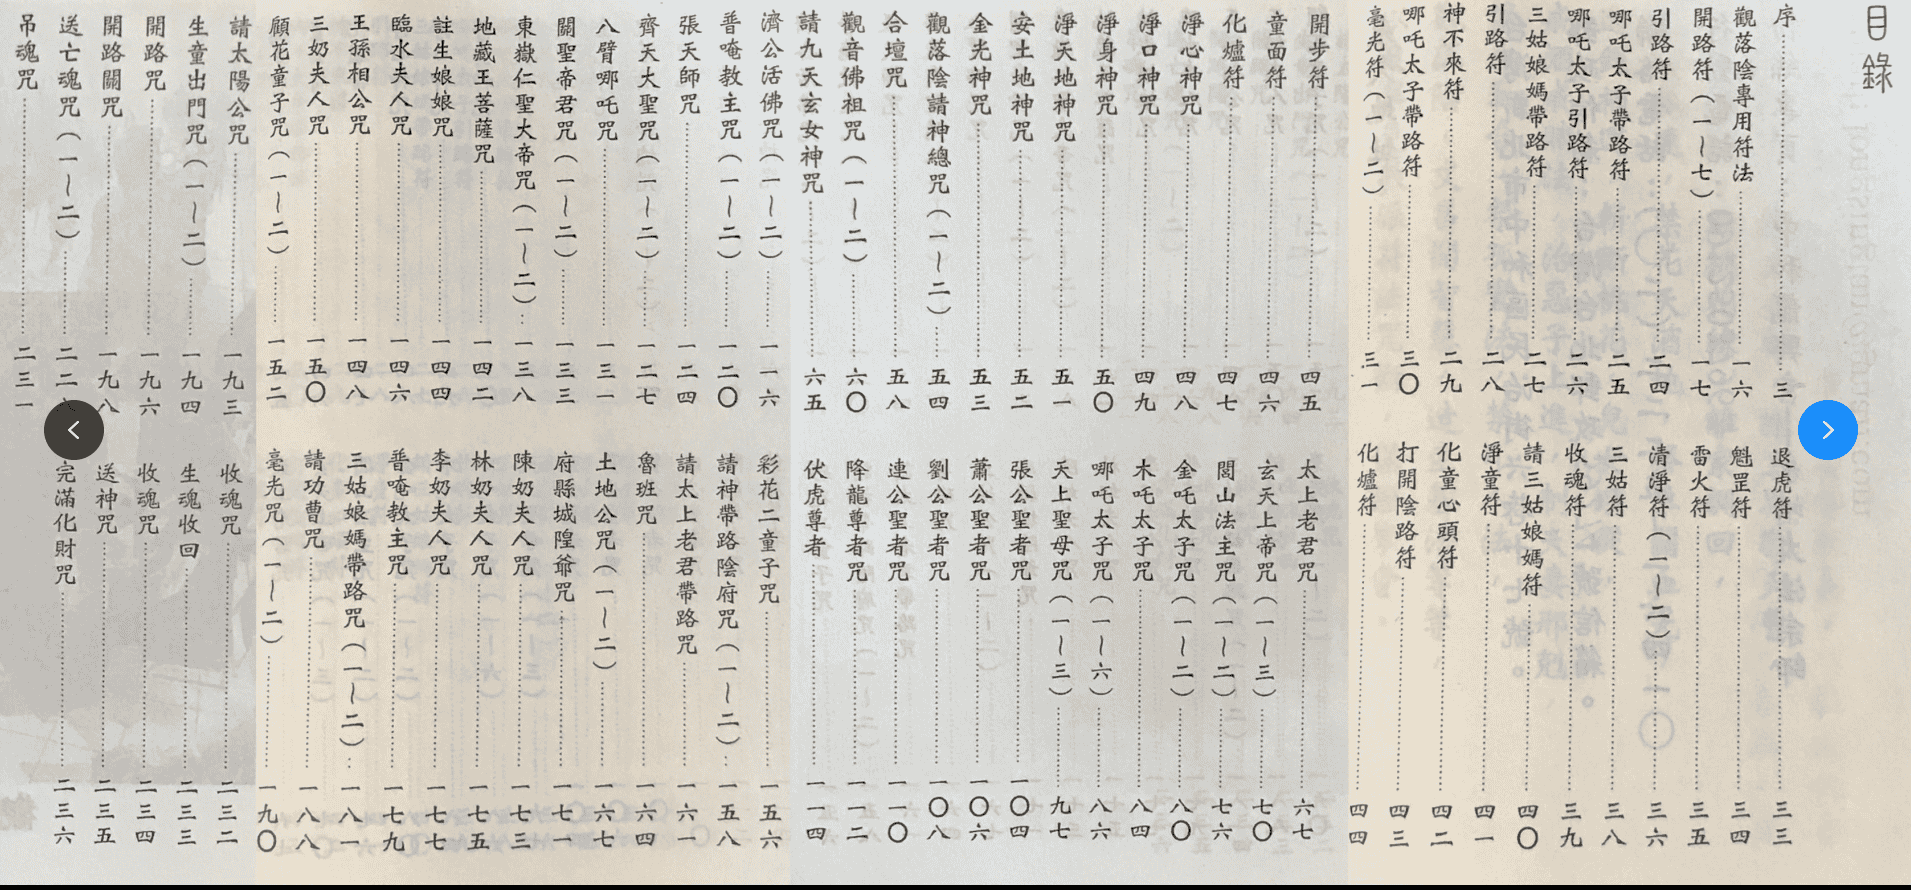 目錄
序 三
觀落陰專用符法 一六
開路符(一~七) 一七
引路符 二四
哪吒太子帶路符 二五
哪吒太子引路符 二六
三姑娘媽帶路符 二七
引路符 二八
神不來符 二九
哪吒太子帶路符 三〇
毫光符(一~二) 三一
退虎符 三三
魁罡符 三四
雷火符 三五
清淨符(一~二) 三六
三姑符 三八
收魂符 三九
請三姑娘媽符 四〇
淨童符 四一
化童心頭符 四二
打開陰路符 四三
化爐符 四四
開步符 四五
童面符 四六
化爐符 四七
淨心神咒 四八
淨口神咒 四九
淨身神咒 五〇
淨天地神咒 五一
安土地神咒 五二
金光神咒 五三
觀落陰請神總咒(一~二) 五四
合壇咒 五八
觀音佛祖咒(一~二) 六〇
請九天玄女神咒 六五
太上老君咒 六七
玄天上帝咒(一~三) 七〇
閭山法主咒(一~二) 七六
金吒太子咒(一~二) 八〇
木吒太子咒 八四
哪吒太子咒(一~六) 八六
天上聖母咒(一~三) 九七
張公聖者咒 一〇四
蕭公聖者咒 一〇六
劉公聖者咒 一〇八
連公聖者咒 一一〇
降龍尊者咒 一一二
伏虎尊者 一一四
濟公活佛咒(一~二) 一一六
普唵教主咒(一~二) 一二〇
張天師咒 一二四
齊天大聖咒(一~二) 一二七
八臂哪吒咒 一三一
關聖帝君咒(一~二) 一三三
東嶽仁聖大帝咒(一~二) 一三八
地藏王菩薩咒 一四二
註生娘娘咒 一四四
臨水夫人咒 一四六
王孫相公咒 一四八
三奶夫人咒 一五〇
顧花童子咒(一~二) 一五二
彩花二童子咒 一五六
請神帶路陰府咒(一~二) 一五八
請太上老君帶路咒 一六一
魯班咒 一六四
土地公咒(一~二) 一六七
府縣城隍爺咒 一七一
陳奶夫人咒 一七三
林奶夫人咒 一七五
李奶夫人咒 一七七
普唵教主咒 一七九
三姑娘媽帶路咒(一~二) 一八一
請功曹咒 一八八
毫光咒(一~二) 一九〇
請太陽公咒 一九三
生童出門咒(一~二) 一九四
開路咒 一九六
開路關咒 一九八
送亡魂咒(一~二) 二二
吊魂咒 二三一
收魂咒 二三二
生魂收回 二三三
收魂咒 二三四
送神咒 二三五
完滿化財咒 二三六